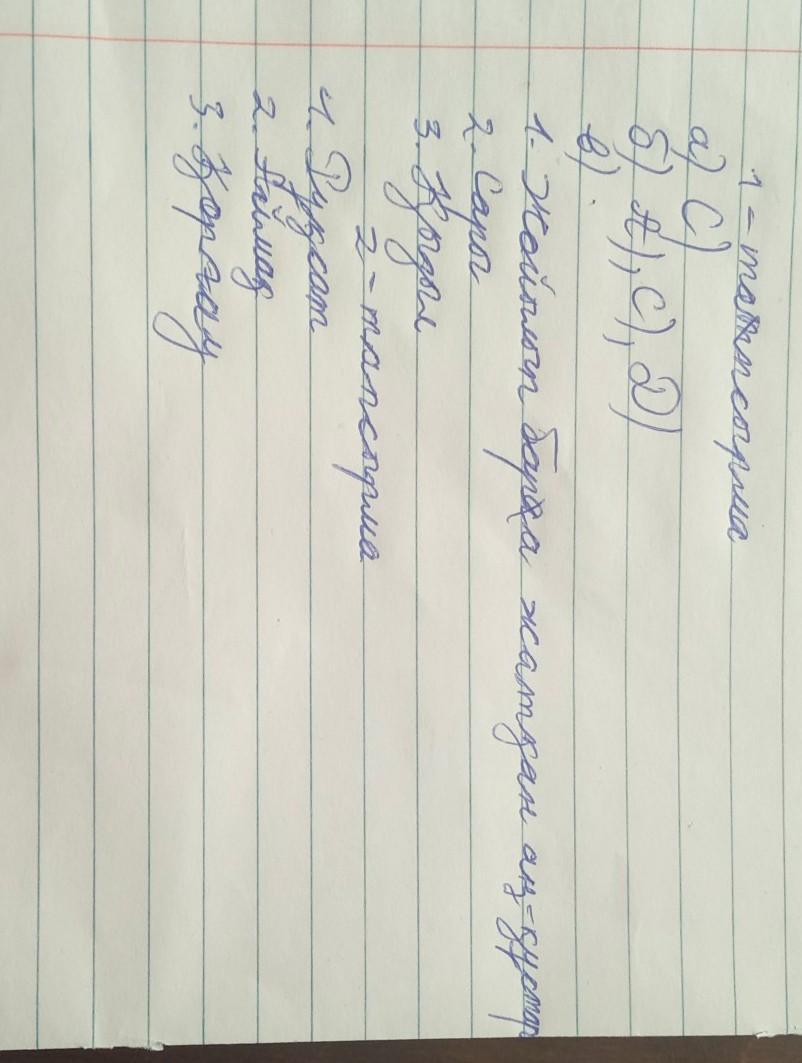 1 - тапсырма
а) С)
б) А), С), D)
в).
1. Жойылып бара жатқан аң-құстар
2. Сары
3. Қызыл
2 - тапсырма
1. Рұқсат
2. Аймақ
3. Қорғау